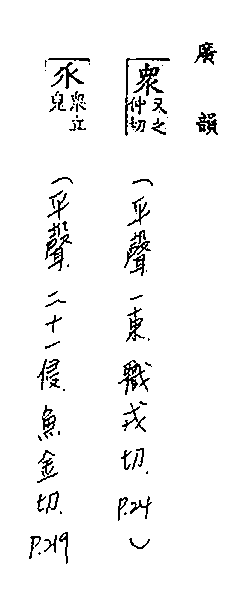 廣韻
眾 又之仲切 (平聲.一東.職戎切.P.24)
乑 眾立皃 (平聲.二十一侵.魚金切.P.219